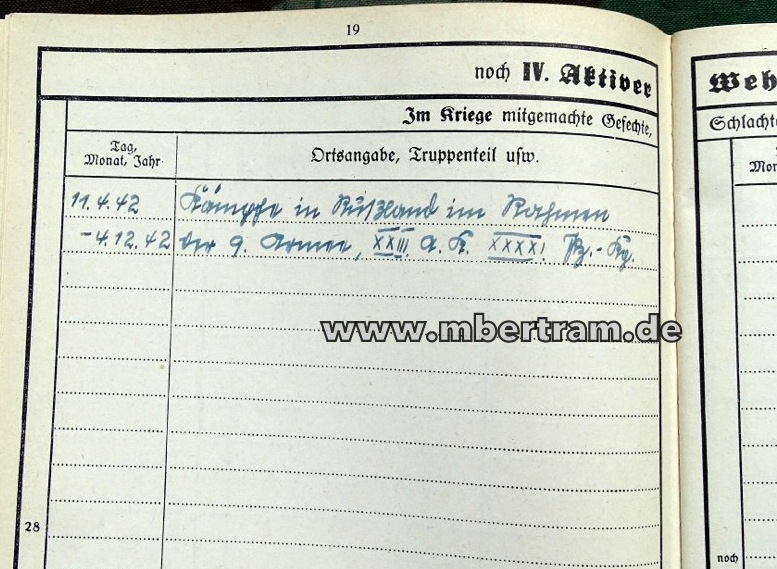 19
noch IV. Aktiver
Weh
Im Kriege mitgemachte Gefechte,
Schlacht
Tag,
Monat, Jahr
Ortsangabe, Truppenteil usw.
Mon
11.4.42 Kämpfe in Rußland im Rahmen
-4.12.42 der 9. Armee, XXIII. A.K. XXXXI. Pz.-Kp.
www.mbertram.de
28
noch